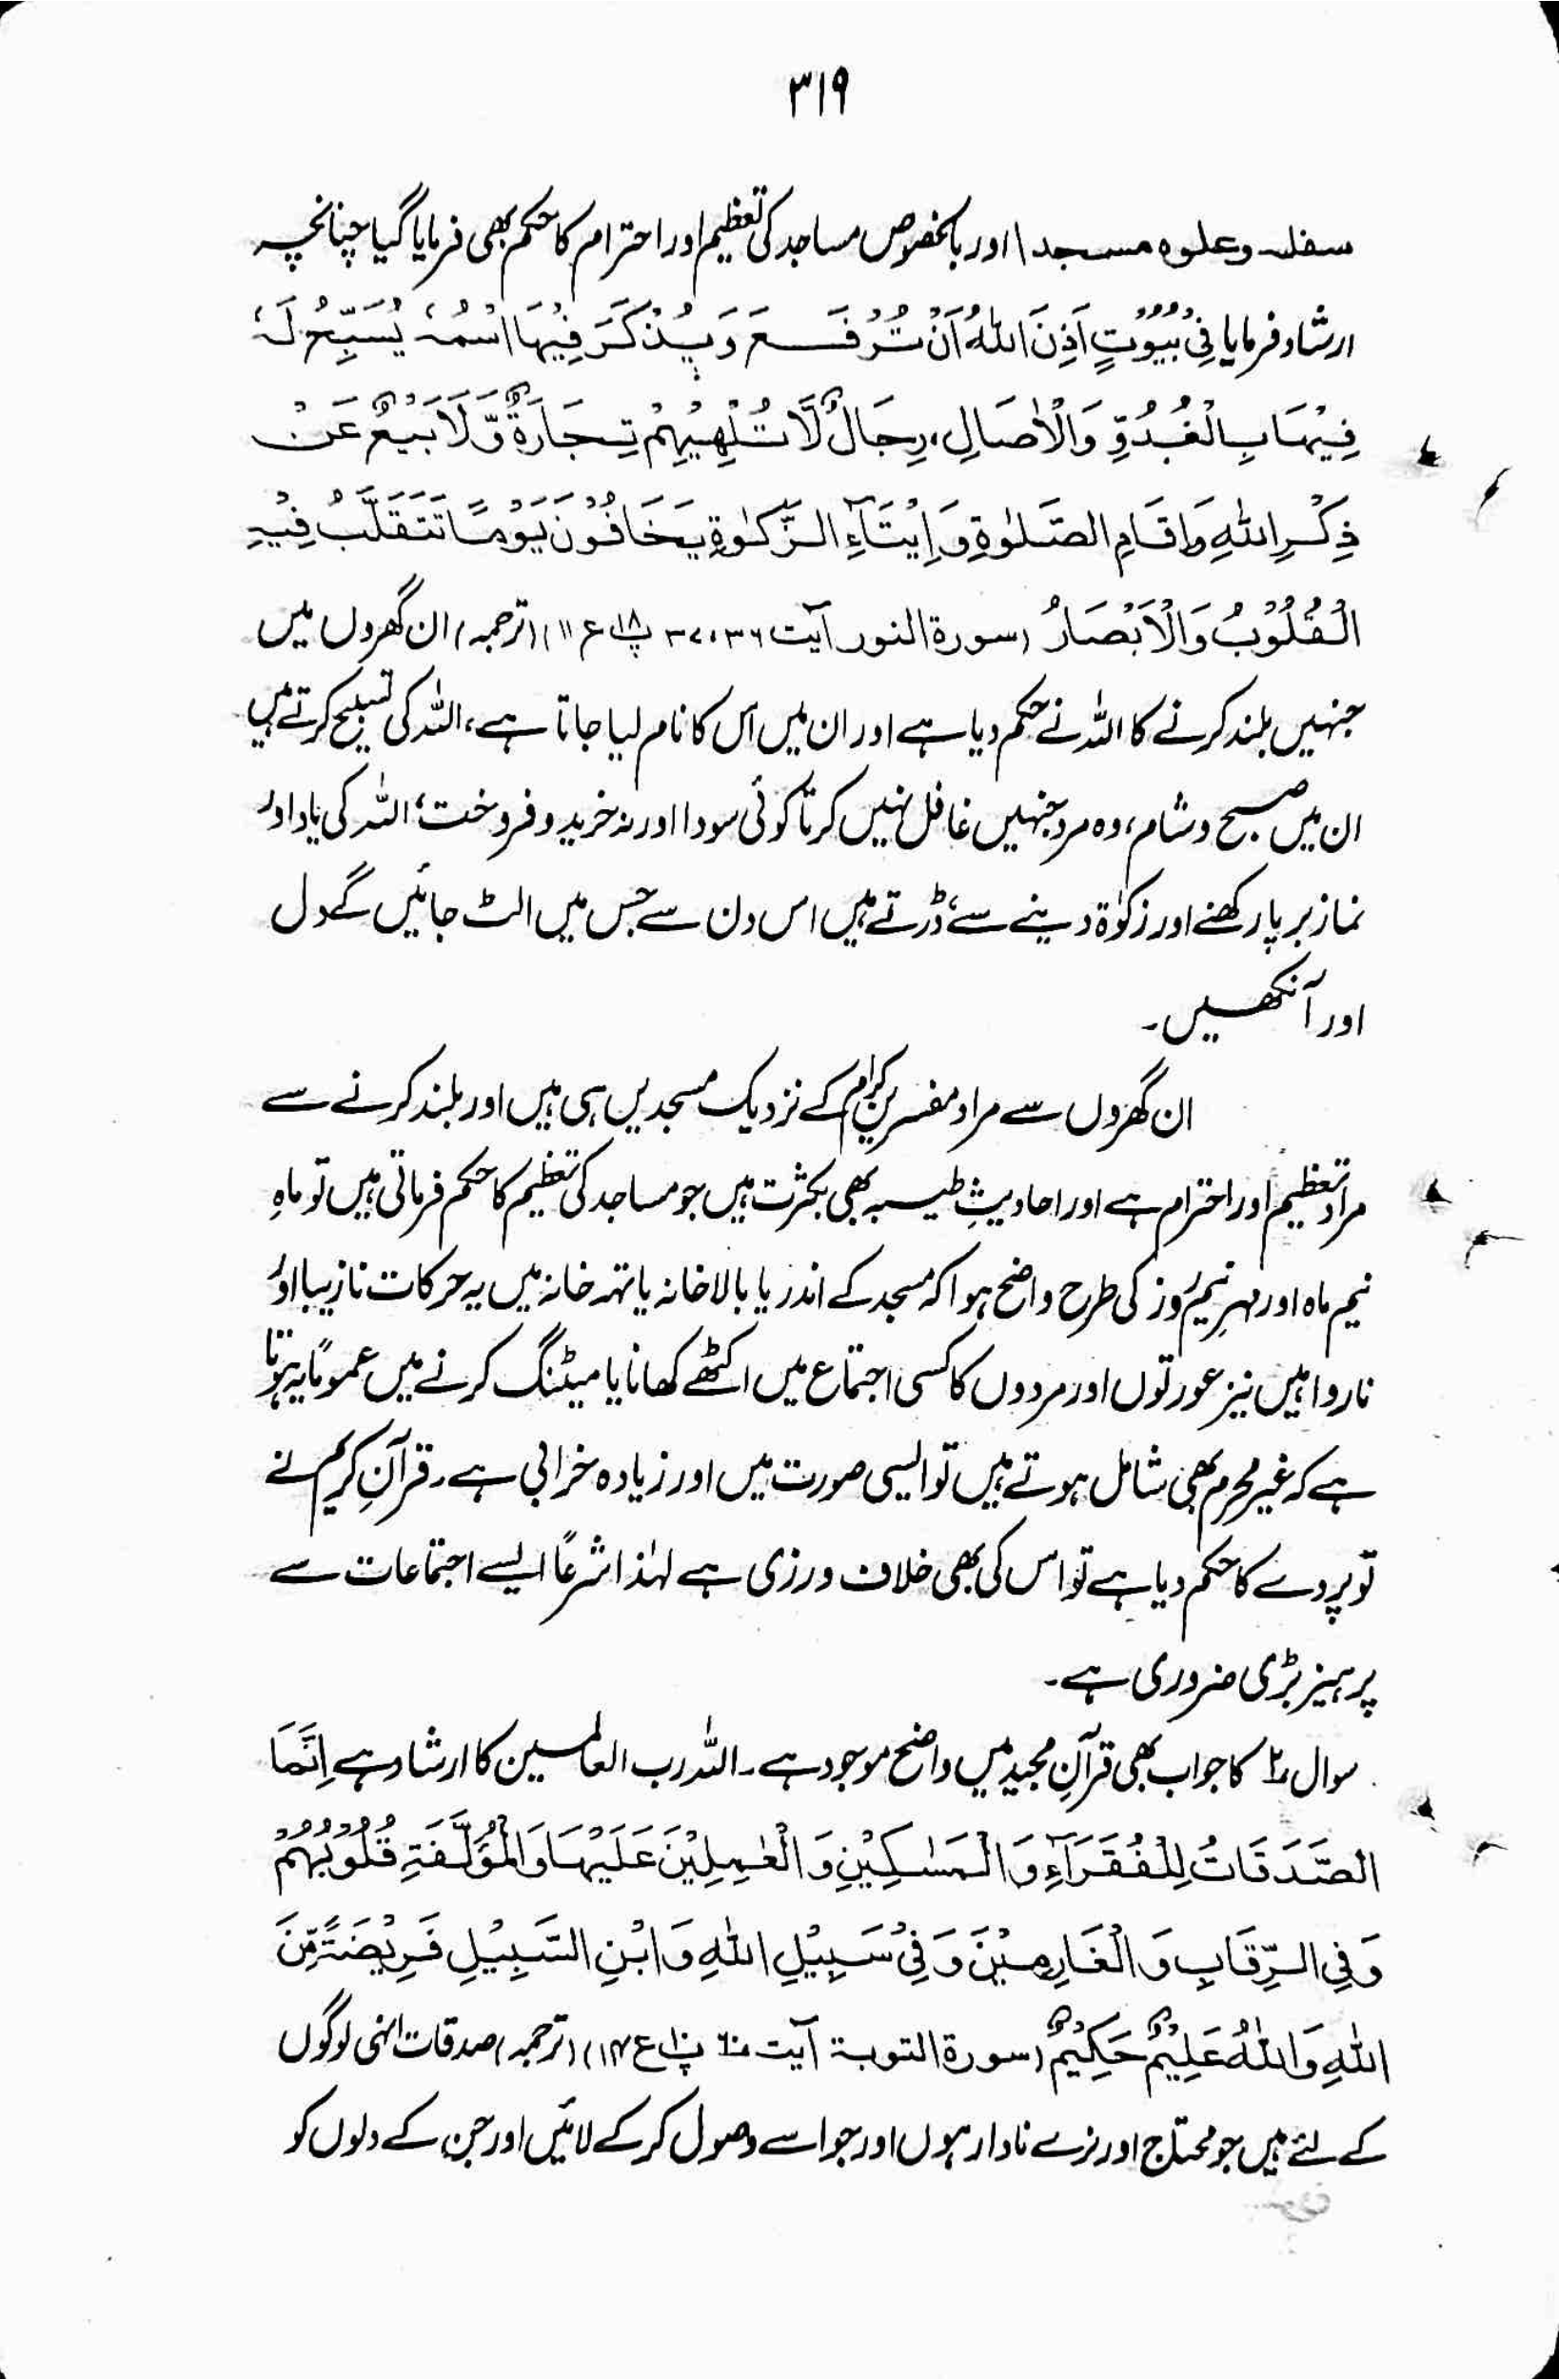 ۳۱۹
سفلہ وعلوہ مسجدا اور بالخصوص مساجد کی تعظیم اور احترام کا حکم بھی فرمایا گیا چنانچہ
ارشاد فرمایا فِیْ بُیُوْتٍ اَذِنَ اللّٰہُ اَنْ تُرْفَعَ وَ یُذْکَرَ فِیْہَا اسْمُہٗ یُسَبِّحُ لَہٗ
فِیْہَا بِالْغُدُوِّ وَالْاٰصَالِ، رِجَالٌ لَّا تُلْہِیْہِمْ تِجَارَۃٌ وَّلَا بَیْعٌ عَنْ
ذِکْرِ اللّٰہِ وَاِقَامِ الصَّلٰوۃِ وَاِیْتَآءِ الزَّکٰوۃِ یَخَافُوْنَ یَوْمًا تَتَقَلَّبُ فِیْہِ
الْقُلُوْبُ وَالْاَبْصَارُ (سورۃ النور آیت ۳۶، ۳۷ پ۱۸ ع ۱۱) (ترجمہ) ان گھروں میں
جنہیں بلند کرنے کا اللہ نے حکم دیا ہے اور ان میں اس کا نام لیا جاتا ہے، اللہ کی تسبیح کرتے ہیں
ان میں صبح و شام، وہ مرد جنہیں غافل نہیں کرتا کوئی سودا اور نہ خرید و فروخت، اللہ کی یاد اور
نماز برپا رکھنے اور زکوٰۃ دینے سے، ڈرتے ہیں اس دن سے جس میں الٹ جائیں گے دل
اور آنکھیں۔
ان گھروں سے مراد مفسرین کرام کے نزدیک مسجدیں ہی ہیں اور بلند کرنے سے
مراد تعظیم اور احترام ہے اور احادیثِ طیبہ بھی بکثرت ہیں جو مساجد کی تعظیم کا حکم فرماتی ہیں تو ماہِ
نیم ماہ اور مہرِ نیم روز کی طرح واضح ہوا کہ مسجد کے اندر یا بالا خانہ یا تہہ خانہ میں یہ حرکات نازیبا اور
ناروا ہیں نیز عورتوں اور مردوں کا کسی اجتماع میں اکٹھے کھانا یا میٹنگ کرنے میں عموماً یہ ہوتا
ہے کہ غیر محرم بھی شامل ہوتے ہیں تو ایسی صورت میں اور زیادہ خرابی ہے۔ قرآنِ کریم نے
تو پردے کا حکم دیا ہے تو اس کی بھی خلاف ورزی ہے لہٰذا شرعاً ایسے اجتماعات سے
پرہیز بڑی ضروری ہے۔
سوال ۲ کا جواب بھی قرآنِ مجید میں واضح موجود ہے۔ اللہ رب العالمین کا ارشاد ہے اِنَّمَا
الصَّدَقَاتُ لِلْفُقَرَآءِ وَالْمَسٰکِیْنِ وَالْعٰمِلِیْنَ عَلَیْہَا وَالْمُؤَلَّفَۃِ قُلُوْبُہُمْ
وَفِی الرِّقَابِ وَالْغَارِمِیْنَ وَفِیْ سَبِیْلِ اللّٰہِ وَابْنِ السَّبِیْلِ فَرِیْضَۃً مِّنَ
اللّٰہِ وَاللّٰہُ عَلِیْمٌ حَکِیْمٌ (سورۃ التوبۃ آیت ۶۰ پ۱۰ ع ۱۴) (ترجمہ) صدقات انہی لوگوں
کے لئے ہیں جو محتاج اور نرے نادار ہوں اور جو اسے وصول کر کے لائیں اور جن کے دلوں کو